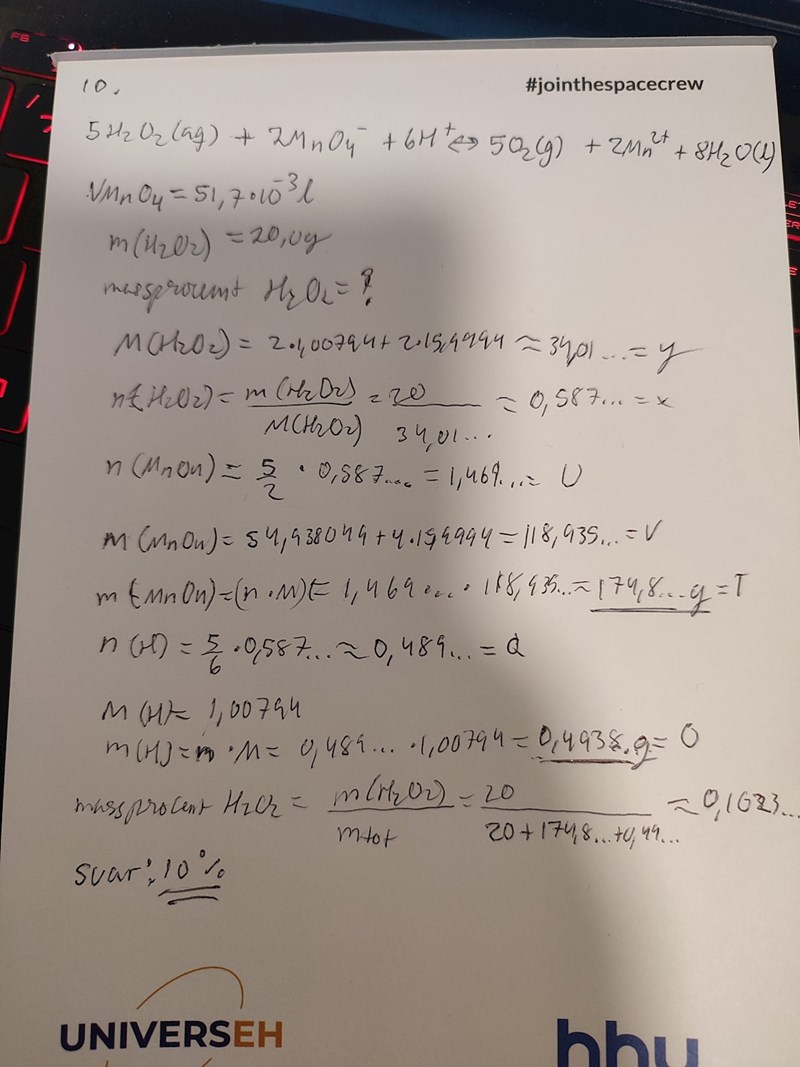 10.
#jointhespacecrew
5H₂O₂(aq) + 2MnO₄⁻ + 6H⁺ ⇔ 5O₂(g) + 2Mn²⁺ + 8H₂O(l)
VMnO₄ = 51,7·10⁻³ l
m(H₂O₂) = 20,0g
massprocent H₂O₂ = ?
M(H₂O₂) = 2·1,00794 + 2·15,9994 ≈ 34,01... = y
n(H₂O₂) = m(H₂O₂)/M(H₂O₂) = 20/34,01... ≈ 0,587... = x
n(MnO₄) = 5/2 · 0,587... = 1,469... = U
M(MnO₄) = 54,938049 + 4·15,9994 = 118,935... = V
m(MnO₄) = (n·M) = 1,469... · 118,935... ≈ 174,8... g = T
n(H) = 5/6 · 0,587... ≈ 0,489... = Q
M(H) = 1,00794
m(H) = n·M = 0,489... · 1,00794 = 0,4938.g = O
massprocent H₂O₂ = m(H₂O₂)/mtot = 20/20+174,8...+0,49... ≈ 0,1023...
svar: 10%
UNIVERSEH
hhu